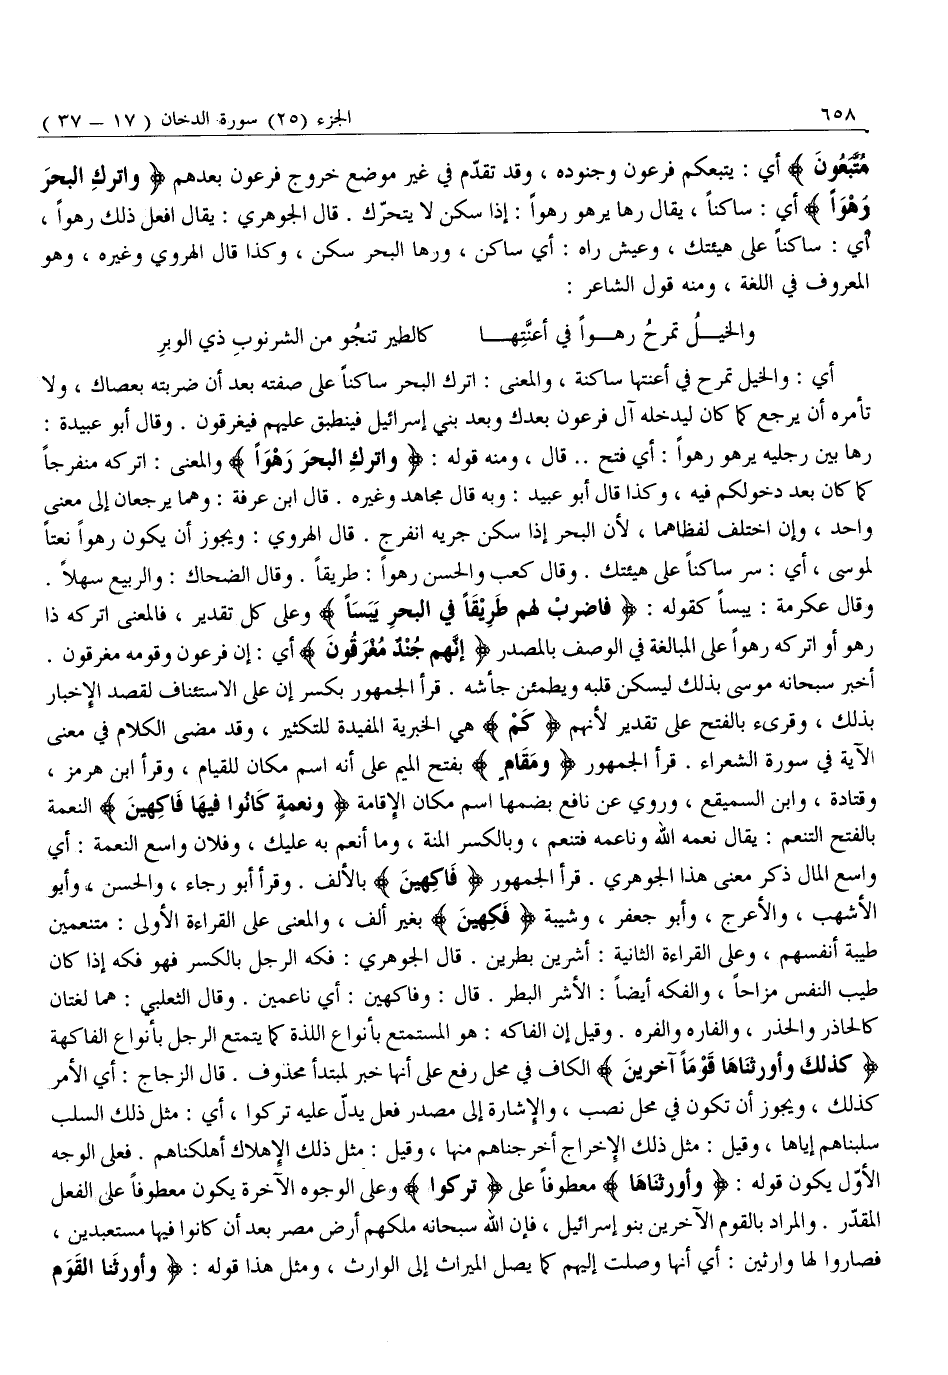 ٦٥٨
الجزء (٢٥) سورة الدخان ( ١٧ – ٣٧ )
مُتَّبَعُونَ ﴾ أي : يتبعكم فرعون وجنوده ، وقد تقدّم في غير موضع خروج فرعون بعدهم ﴿ واتركِ البحرَ
رَهْوَاً ﴾ أي : ساكناً ، يقال رها يرهو رهواً : إذا سكن لا يتحرّك . قال الجوهري : يقال افعل ذلك رهواً ،
أي : ساكناً على هيئتك ، وعيش راه : أي ساكن ، ورها البحر سكن ، وكذا قال الهروي وغيره ، وهو
المعروف في اللغة ، ومنه قول الشاعر :
والخيـــلُ تمرحُ رهـــواً في أعنَّتِهـــا كالطير تنجُو من الشرنوبِ ذي الوبرِ
أي : والخيل تمرح في أعنتها ساكنة ، والمعنى : اترك البحر ساكناً على صفته بعد أن ضربته بعصاك ، ولا
تأمره أن يرجع كما كان ليدخله آل فرعون بعدك وبعد بني إسرائيل فينطبق عليهم فيغرقون . وقال أبو عبيدة :
رها بين رجليه يرهو رهواً : أي فتح .. قال ، ومنه قوله : ﴿ واتركِ البحرَ رَهْوَاً ﴾ والمعنى : اتركه منفرجاً
كما كان بعد دخولكم فيه ، وكذا قال أبو عبيد : وبه قال مجاهد وغيره . قال ابن عرفة : وهما يرجعان إلى معنى
واحد ، وإن اختلف لفظاهما ، لأن البحر إذا سكن جريه انفرج . قال الهروي : ويجوز أن يكون رهواً نعتاً
لموسى ، أي : سر ساكناً على هيئتك . وقال كعب والحسن رهواً : طريقاً . وقال الضحاك : والربيع سهلاً .
وقال عكرمة : يبساً كقوله : ﴿ فاضربْ لهم طَرِيْقَاً في البحرِ يَبَسَاً ﴾ وعلى كل تقدير ، فالمعنى اتركه ذا
رهو أو اتركه رهواً على المبالغة في الوصف بالمصدر ﴿ إنَّهم جُنْدٌ مُغْرَقُونَ ﴾ أي : إن فرعون وقومه مغرقون .
أخبر سبحانه موسى بذلك ليسكن قلبه ويطمئن جأشه . قرأ الجمهور بكسر إن على الاستئناف لقصد الإخبار
بذلك ، وقرىء بالفتح على تقدير لأنهم ﴿ كَمْ ﴾ هي الخبرية المفيدة للتكثير ، وقد مضى الكلام في معنى
الآية في سورة الشعراء . قرأ الجمهور ﴿ ومَقَامٍ ﴾ بفتح الميم على أنه اسم مكان للقيام ، وقرأ ابن هرمز ،
وقتادة ، وابن السميقع ، وروي عن نافع بضمها اسم مكان الإقامة ﴿ ونعمةٍ كَانُوا فيهَا فَاكهِينَ ﴾ النعمة
بالفتح التنعم : يقال نعمه الله وناعمه فتنعم ، وبالكسر المنة ، وما أنعم به عليك ، وفلان واسع النعمة : أي
واسع المال ذكر معنى هذا الجوهري . قرأ الجمهور ﴿ فَاكِهينَ ﴾ بالألف . وقرأ أبو رجاء ، والحسن ، وأبو
الأشهب ، والأعرج ، وأبو جعفر ، وشيبة ﴿ فَكِهينَ ﴾ بغير ألف ، والمعنى على القراءة الأولى : متنعمين
طيبة أنفسهم ، وعلى القراءة الثانية : أشرين بطرين . قال الجوهري : فكه الرجل بالكسر فهو فكه إذا كان
طيب النفس مزاحاً ، والفكه أيضاً : الأشر البطر . قال : وفاكهين : أي ناعمين . وقال الثعلبي : هما لغتان
كالحاذر والحذر ، والفاره والفره . وقيل إن الفاكه : هو المستمتع بأنواع اللذة كما يتمتع الرجل بأنواع الفاكهة
﴿ كذلكَ وأورثنَاهَا قَوْمَاً آخرينَ ﴾ الكاف في محل رفع على أنها خبر لمبتدأ محذوف . قال الزجاج : أي الأمر
كذلك ، ويجوز أن تكون في محل نصب ، والإشارة إلى مصدر فعل يدلّ عليه تركوا ، أي : مثل ذلك السلب
سلبناهم إياها ، وقيل : مثل ذلك الإخراج أخرجناهم منها ، وقيل : مثل ذلك الإهلاك أهلكناهم . فعلى الوجه
الأوّل يكون قوله : ﴿ وأورثنَاهَا ﴾ معطوفاً على ﴿ تركوا ﴾ وعلى الوجوه الآخرة يكون معطوفاً على الفعل
المقدّر . والمراد بالقوم الآخرين بنو إسرائيل ، فإن الله سبحانه ملكهم أرض مصر بعد أن كانوا فيها مستعبدين ،
فصاروا لها وارثين : أي أنها وصلت إليهم كما يصل الميراث إلى الوارث ، ومثل هذا قوله : ﴿ وأورثنا القَوَم